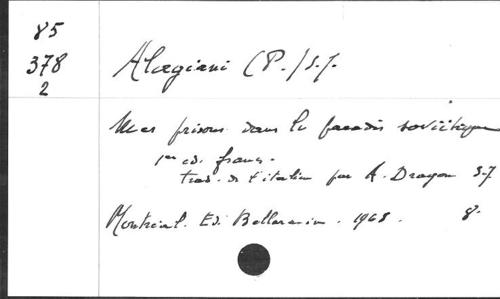 85
378
2
Alagiani (P.) s.j.
Mes prisons dans le paradis soviétique
1re éd. franç.
trad. de l'italien par A. Dragon s.j
Montréal. Ed. Bellarmin. 1968. 8°